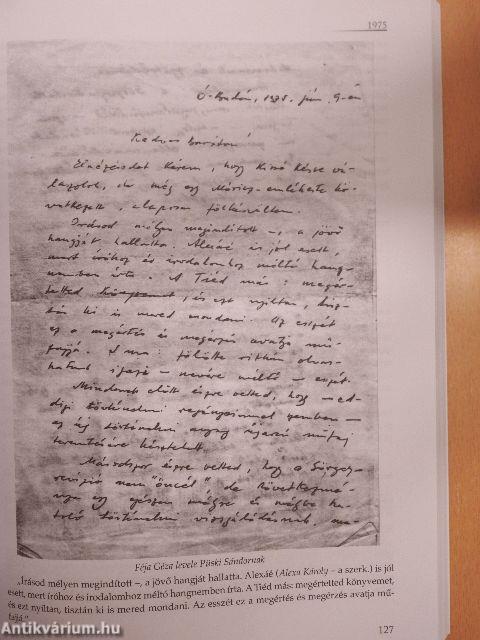 1975
Ó-Budán, 1975. jún. 9-én
Kedves barátom!
Elnézésedet kérem, hogy kissé késve vá-
laszolok, de még egy Móricz-emlékezés kö-
vetkezett, alaposan
Írásod mélyen megindított –, a jövő
hangját hallatta. Alexáé is jól esett,
mert íróhoz és irodalomhoz méltó hang-
nemben írta. A Tiéd más: megér-
tetted könyvemet, és ezt nyíltan, tisz-
tán ki is mered mondani. Az esszét
ez a megértés és megérzés avatja mű-
fajjá. S ma: fölötte ritkán olvas-
hatunk igazi – nevére méltó – esszét.
Mindenek előtt észre vetted, hogy – ed-
digi történelmi regényeimmel szemben –
az új történelmi anyag újszerű műfaj
teremtésére késztetett.
Másodszor észre vetted, hogy a Görgey-
revízió nem "öncél", de következmé-
nye egy egészen mélyre és mélybe ha-
toló történelmi vizsgálódásnak,
Féja Géza levele Püski Sándornak
„Írásod mélyen megindított –, a jövő hangját hallatta. Alexáé (Alexa Károly – a szerk.) is jól
esett, mert íróhoz és irodalomhoz méltó hangnemben írta. A Tiéd más: megértetted könyvemet,
és ezt nyíltan, tisztán ki is mered mondani. Az esszét ez a megértés és megérzés avatja mű-
fajá."
127
Antikvárium.hu